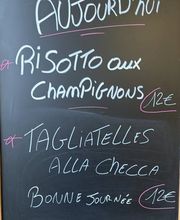 AUJOURD'HUI
* RISOTTO AUX
CHAMPIGNONS 12€
* TAGLIATELLES
ALLA CHECCA
BONNE JOURNÉE 12€